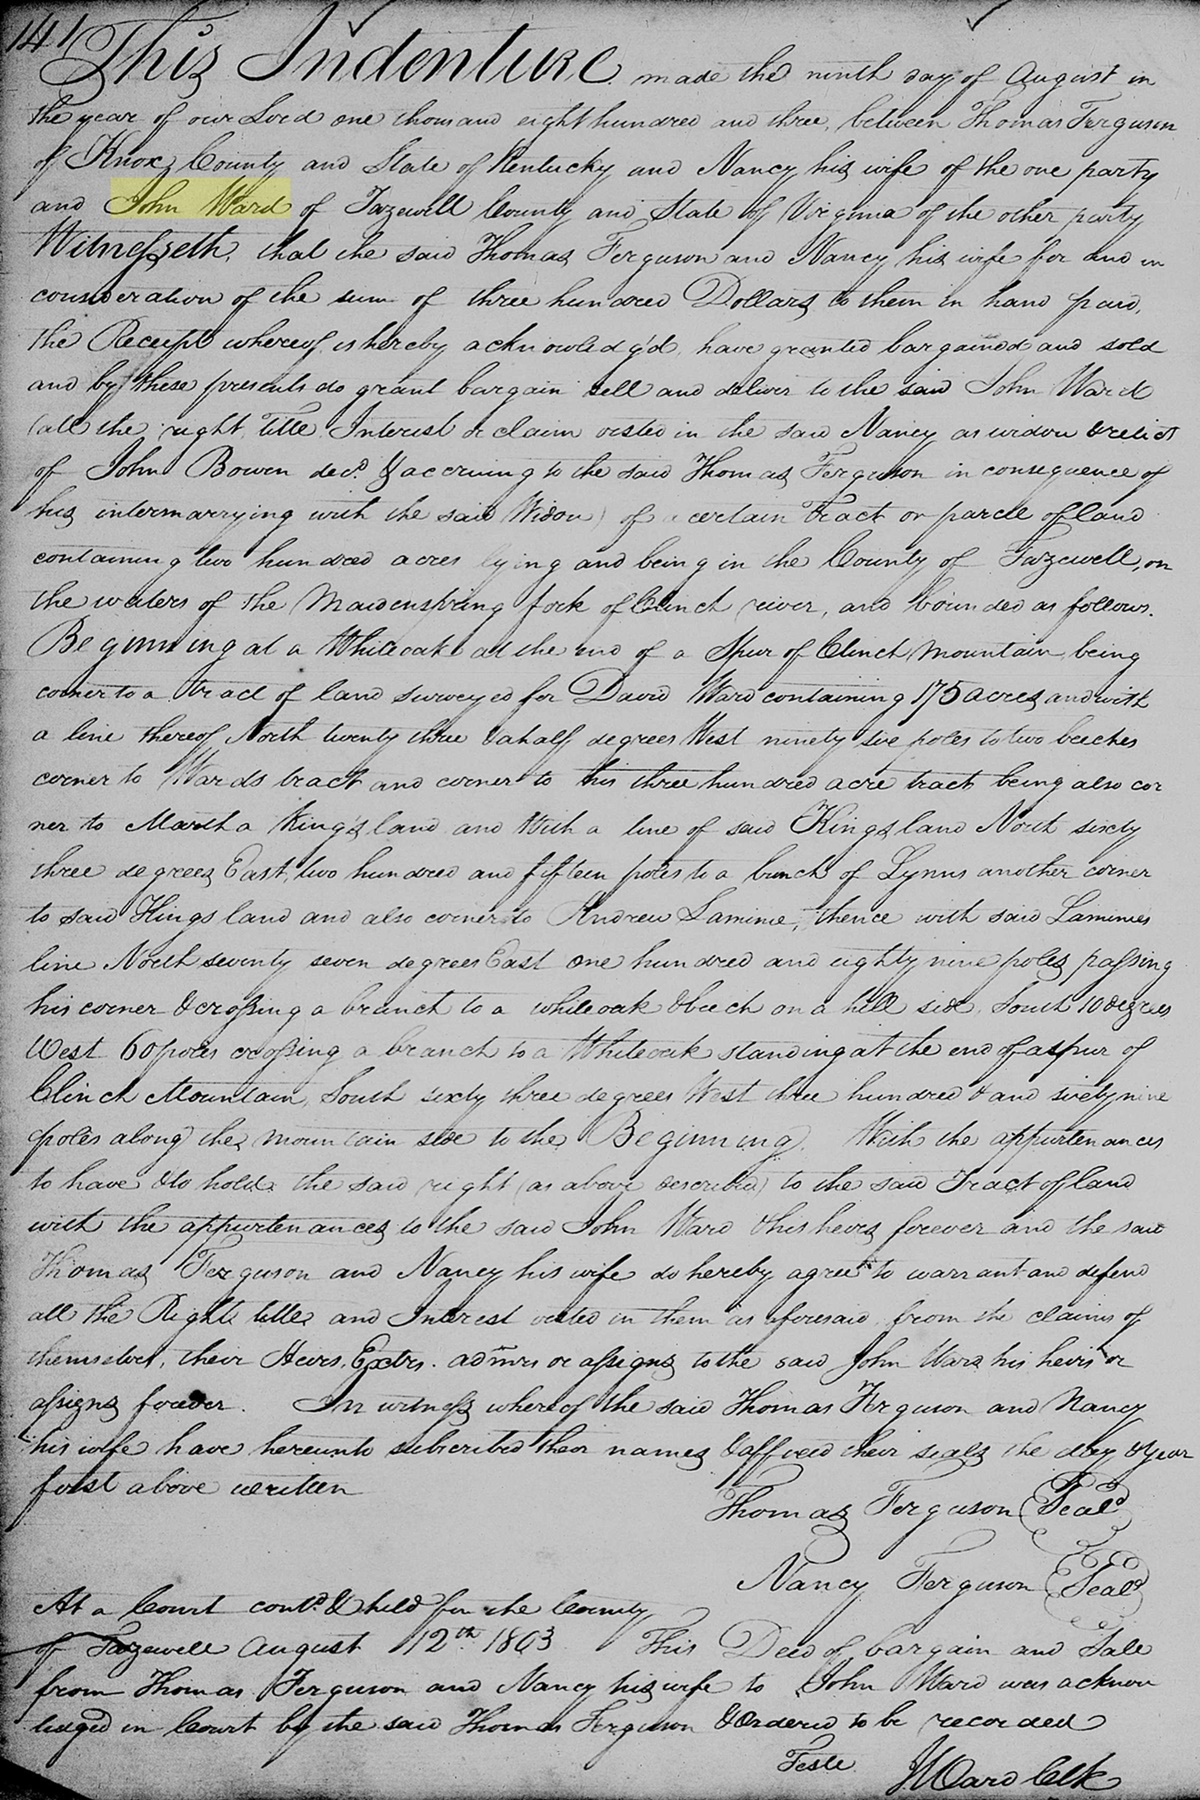 141
This Indenture made the ninth day of August in
the year of our Lord one thousand eight hundred and three, between Thomas Ferguson
of Knox County and State of Kentucky and Nancy his wife of the one party
and John Ward of Tazewell County and State of Virginia of the other party
Witnesseth, that the said Thomas Ferguson and Nancy his wife for and in
consideration of the sum of three hundred Dollars to them in hand paid,
the Receipt whereof is hereby acknowledg'd, have granted bargained and sold
and by these presents do grant bargain sell and deliver to the said John Ward
(all the right, Title Interest & claim vested in the said Nancy as widow & relict
of John Bowen decd. & accruing to the said Thomas Ferguson in consequence of
his intermarrying with the said Widow) of a certain tract or parcle of land
containing two hundred acres lying and being in the County of Tazewell, on
the waters of the Maidenspring fork of Clinch river, and bounded as follows.
Beginning at a Whiteoak at the end of a Spur of Clinch Mountain, being
corner to a tract of land surveyed for David Ward containing 175 acres and with
a line thereof North twenty three & a half degrees West ninety six poles to two beeches
corner to Wards tract and corner to his three hundred acre tract being also cor
ner to Martha King's land and With a line of said Kings land North sixty
three degrees East, two hundred and fifteen poles to a bunch of Lynns another corner
to said Kings land and also corner to Andrew Lamime, thence with said Lamimes
line North seventy seven degrees East one hundred and eighty nine poles passing
his corner & crossing a branch to a whiteoak & beech on a hill side, South 10 degrees
West 60 poles crossing a branch to a Whiteoak standing at the end of a spur of
Clinch Mountain, South sixty three degrees West three hundred & and sixty nine
poles along the mountain side to the Beginning. With the appurtenances
to have & to hold the said right (as above described) to the said Tract of land
with the appurtenances to the said John Ward & his heirs forever and the said
Thomas Ferguson and Nancy his wife do hereby agree to warrant and defend
all the Right title and Interest vested in them as aforesaid from the claims of
themselves, their Heirs, Exctrs. admrs or assigns to the said John Ward his heirs or
assigns forever. In witness whereof the said Thomas Ferguson and Nancy
his wife have hereunto subscribed their names & affixed their seals the day & year
first above written
Thomas Ferguson Seal
Nancy Ferguson Seal
At a Court contd. & held for the County
of Tazewell August 12th 1803 This Deed of bargain and Sale
from Thomas Ferguson and Nancy his wife to John Ward was acknow
ledged in Court by the said Thomas Ferguson & Ordered to be recorded
Teste JWard Clk